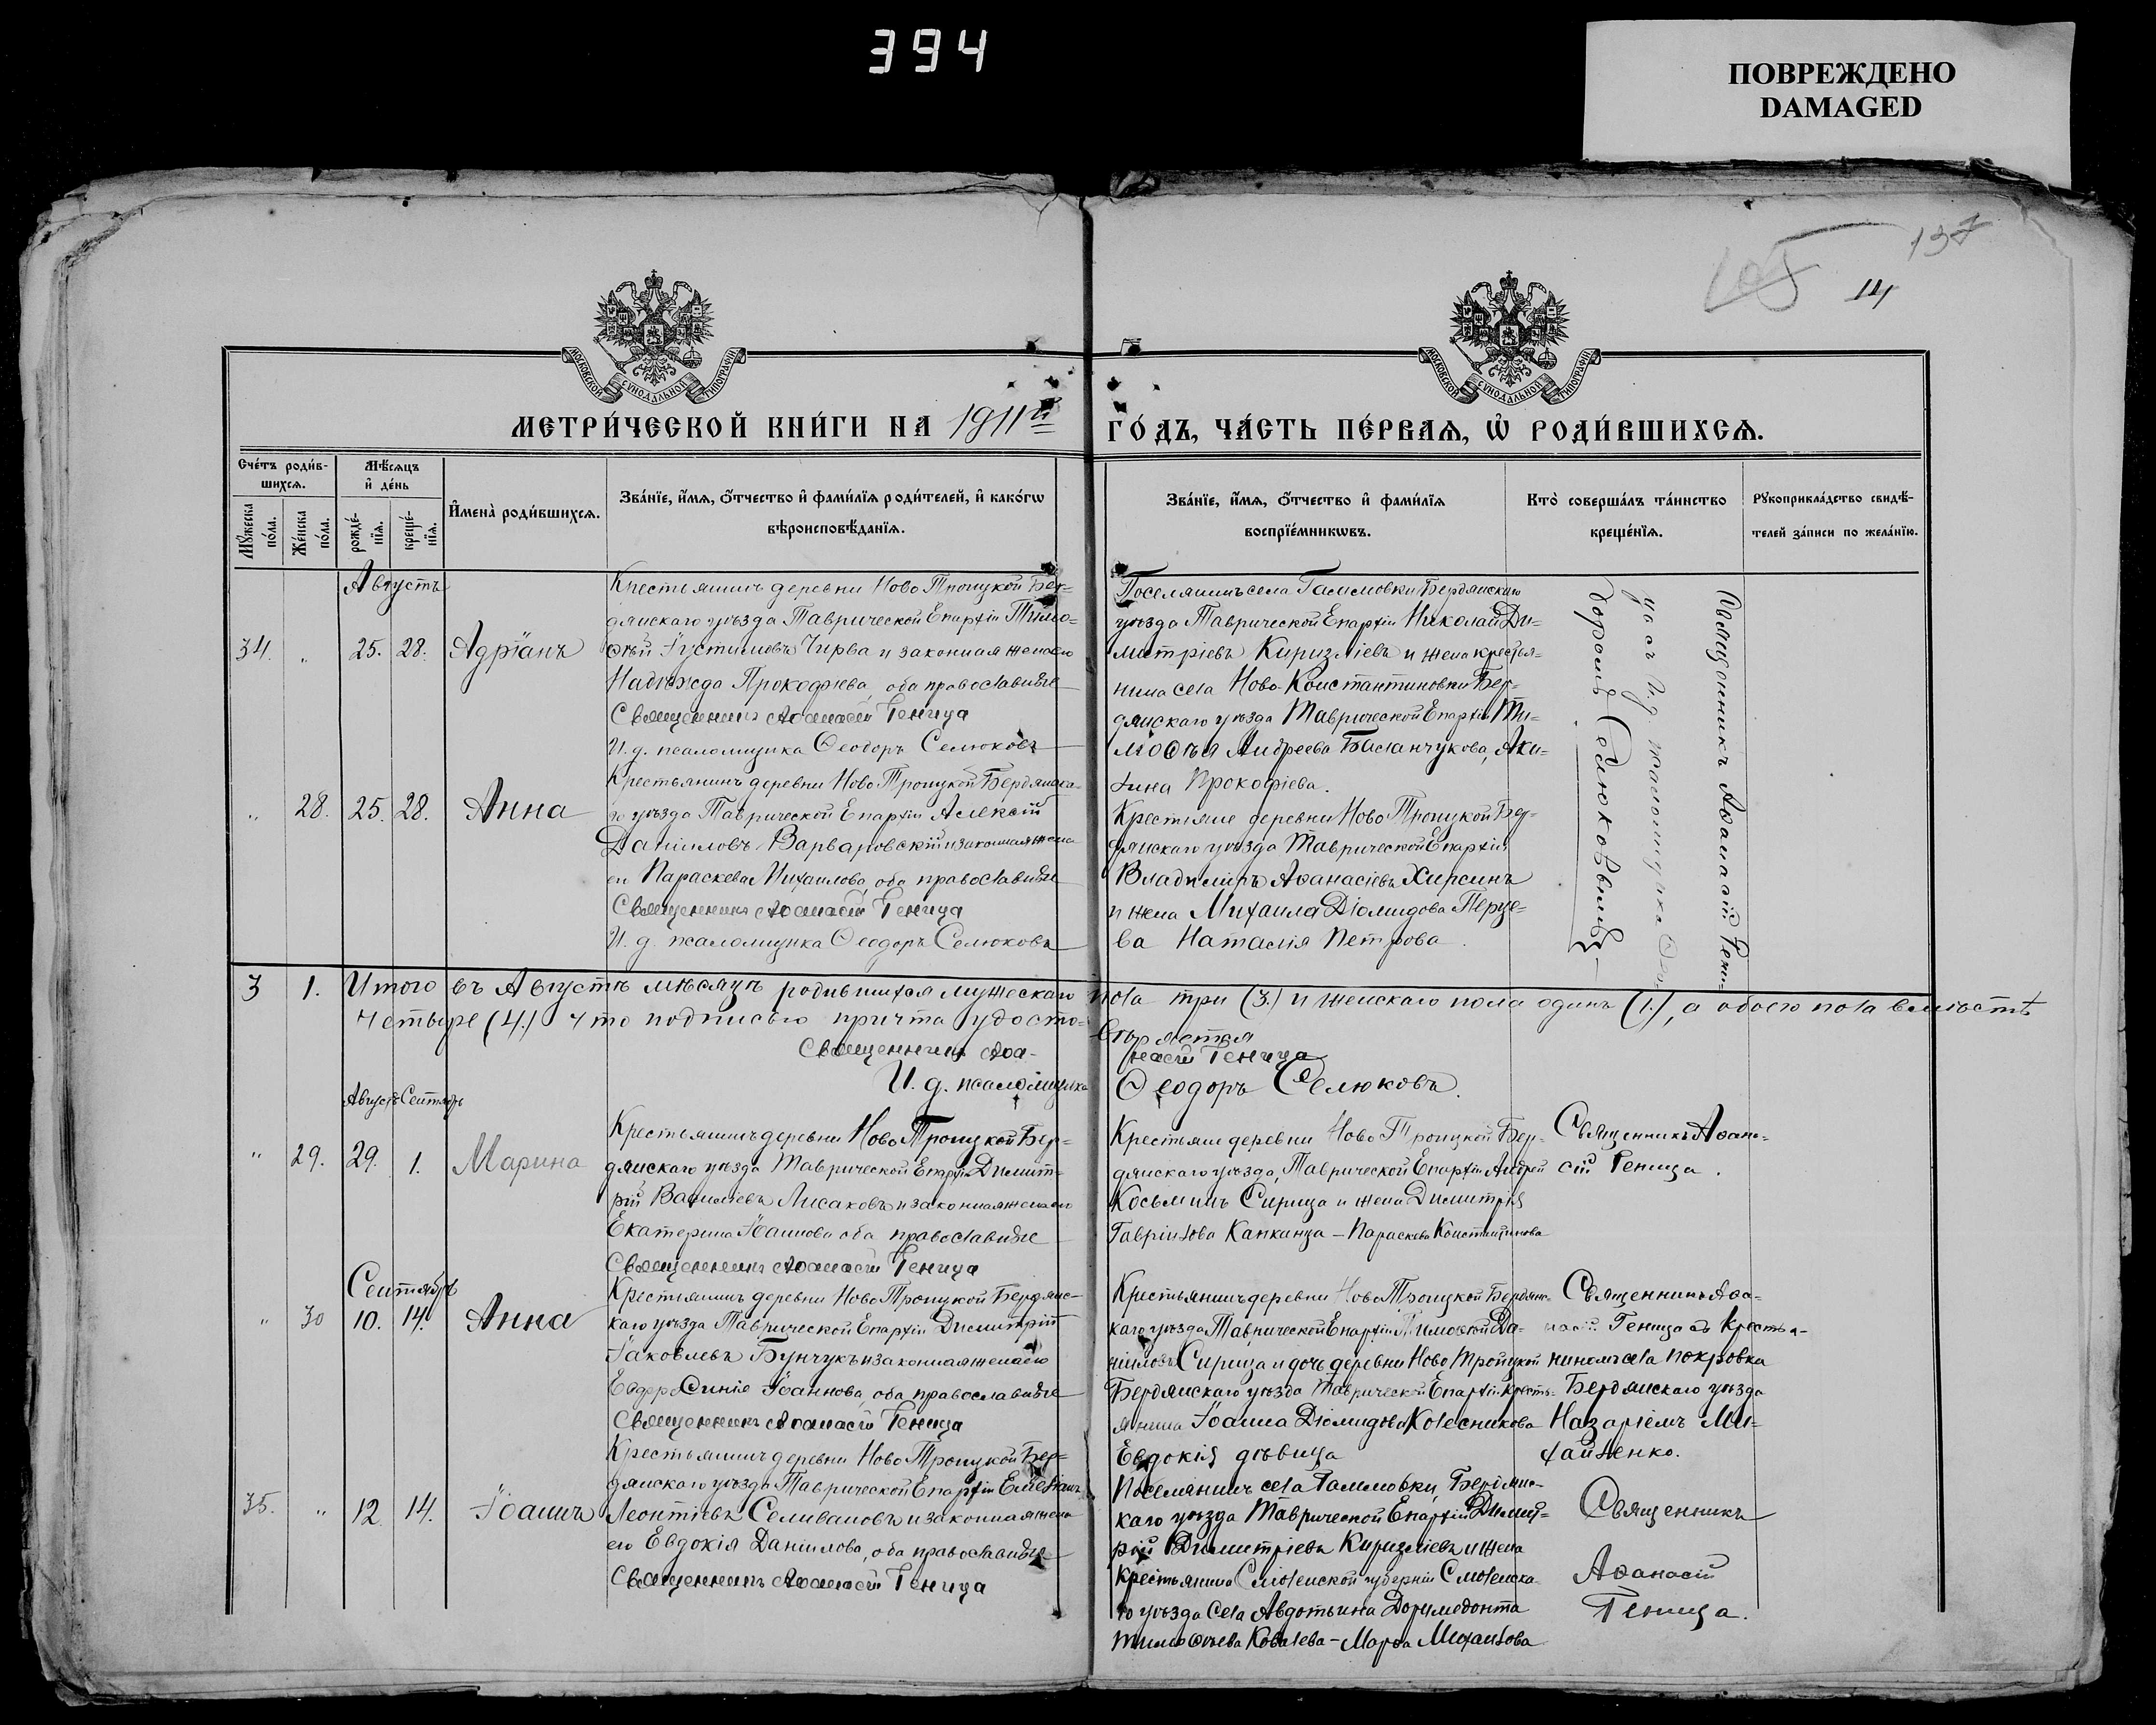 394
ПОВРЕЖДЕНО
DAMAGED
105
137
14
МОСКОВСКОЙ СѴНОДАЛЬНОЙ ТИПОГРАФІИ
МОСКОВСКОЙ СѴНОДАЛЬНОЙ ТИПОГРАФІИ
МЕТРИ́ЧЕСКОЙ КНИ́ГИ НА 1911й ГО́ДЪ, ЧА́СТЬ ПЕ́РВАѦ, Ѡ҆ РОДИ́ВШИХСѦ.
Сче́тъ роди́в-
шихсѧ.
Мѣ́сѧцъ
и҆ де́нь
Мꙋ́жеска
по́ла.
Же́нска
по́ла.
рожде́-
нїѧ.
креще́-
нїѧ.
И҆мена̀ роди́вшихсѧ.
Зва́нїе, и҆́мѧ, ѻ҆́тчество и҆ фами́лїѧ роди́телей, и҆ како́гѡ
вѣроисповѣ́данїѧ.
Зва́нїе, и҆́мѧ, ѻ҆́тчество и҆ фами́лїѧ
воспрїе́мникѡвъ.
Кто̀ соверша́лъ та́инство
креще́нїѧ.
Рꙋкоприкла́дство свидѣ́-
телей за́писи по жела́нїю.
Августъ
34. " 25. 28. Адріанъ
Крестьянинъ деревни Ново Троицкой Бер-
дянскаго уѣзда Таврической Епархіи Тимо-
ѳей Іустиновъ Чирва и законная жена его
Надежда Прокофіева, оба православные
Священникъ Аѳанасій Геница
И. д. псаломщика Ѳеодоръ Селюковъ
Поселянинъ села Гамовки Бердянскаго
уѣзда Таврической Епархіи Николай Ди-
митріевъ Киризліевъ и жена крестья-
нина села Ново Константиновки Бер-
дянскаго уѣзда Таврической Епархіи Ти-
моѳея Андреева Басланчукова, Аки-
лина Прокофіева.
Священникъ Аѳанасій Гени-
ца съ и. д. псаломщика Ѳео-
доромъ Селюковымъ
" 28. 25. 28. Анна
Крестьянинъ деревни Ново Троицкой Бердянска-
го уѣзда Таврической Епархіи Алексій
Даніиловъ Варваровскій и законная жена
его Параскева Михаилова, оба православные
Священникъ Аѳанасій Геница
И. д. псаломщика Ѳеодоръ Селюковъ
Крестьяне деревни Ново Троицкой Бер-
дянскаго уѣзда Таврической Епархіи
Владиміръ Аѳанасіевъ Хирсинъ
и жена Михаила Діомидова Перце-
ва Наталія Петрова.
3 1. Итого въ Августѣ мѣсяцѣ родившихся мужескаго пола три (3.) и женскаго пола одинъ (1.), а обоего пола вмѣстѣ
четыре (4.) что подписью причта удосто-
вѣряется
Священникъ Аѳа-
насій Геница
И. д. псаломщика Ѳеодоръ Селюковъ.
Августъ Сентябрь
" 29. 29. 1. Марина
Крестьянинъ деревни Ново Троицкой Бер-
дянскаго уѣзда Таврической Епархіи Димит-
рій Василіевъ Лисаковъ и законная жена его
Екатерина Іоаннова оба православные
Священникъ Аѳанасій Геница
Крестьяне деревни Ново Троицкой Бер-
дянскаго уѣзда, Таврической Епархіи Андрей
Косьминъ Сирица и жена Димитрія
Гавріилова Капканца - Параскева Константинова
Священникъ Аѳана-
сій Геница.
Сентябрь
" 30 10. 14. Анна
Крестьянинъ деревни Ново Троицкой Бердянс-
каго уѣзда Таврической Епархіи Димитрій
Іаковлевъ Бунчукъ и законная жена его
Евфросинія Іоаннова, оба православные
Священникъ Аѳанасій Геница
Крестьянинъ деревни Ново Троицкой Бердянс-
каго уѣзда Таврической Епархіи Тимоѳей Да-
ніиловъ Сирица и дочь деревни Ново Троицкой
Бердянскаго уѣзда Таврической Епархіи кресть-
янина Іоанна Діомидова Колесникова
Евдокія дѣвица
Священникъ Аѳа-
насій Геница съ Крестья-
ниномъ села Покровка
Бердянскаго уѣзда
Назаріемъ Ми-
хайленко.
35. " 12 14. Іоаннъ
Крестьянинъ деревни Ново Троицкой Бер-
дянскаго уѣзда Таврической Епархіи Емеліанъ
Леонтіевъ Селивановъ и законная жена
его Евдокія Даніилова, оба православные
Священникъ Аѳанасій Геница
Поселянинъ села Гамовки, Бердянс-
каго уѣзда Таврической Епархіи Димит-
рій Димитріевъ Киризліевъ и жена
Крестьянина Смоленской губерніи Смоленска-
го уѣзда села Авдотьина Доримедонта
Тимоѳеева Ковалева - Марѳа Михаилова
Священникъ
Аѳанасій
Геница.